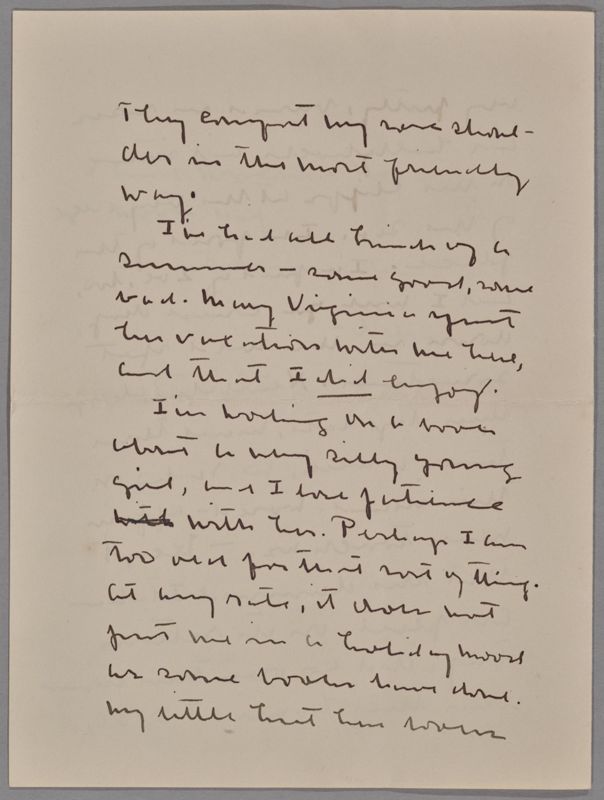 They comfort my sore shoul-
ders in the most friendly
way.
I've had all kinds of a
summer – some good, some
bad. Mary Virginia spent
her vacations with me here,
and that I did enjoy.
I'm working on a book
about a very silly young
girl, and I lose patience
with with her. Perhaps I am
too old for that sort of thing.
At any rate, it does not
put me in a holiday mood
as some books have done.
My little hut here looks